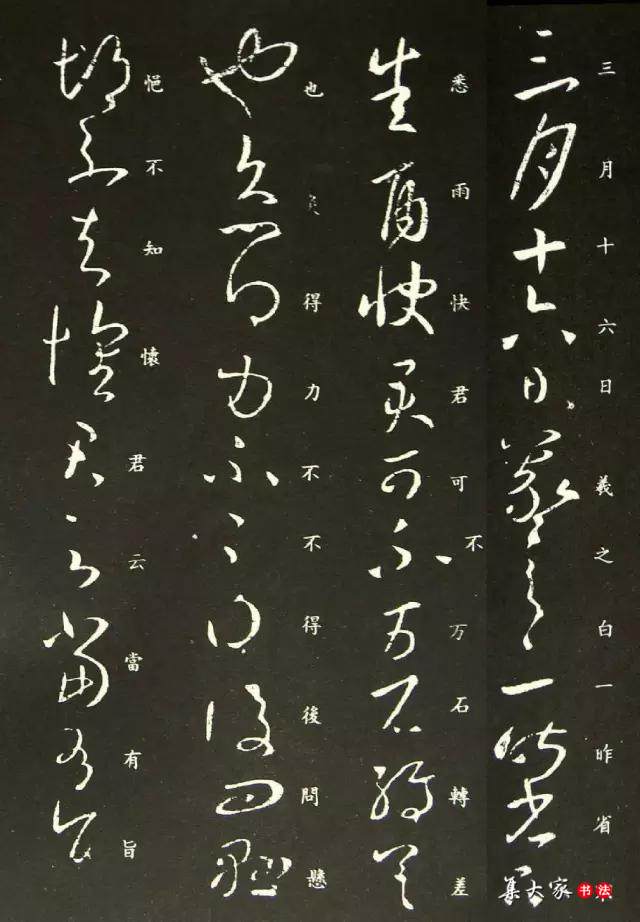 三月十六日羲之白一昨省
悉雨快君可不万石轉差
也得力不不得後問懸
悒不知懷君云當有旨
集大家 书法